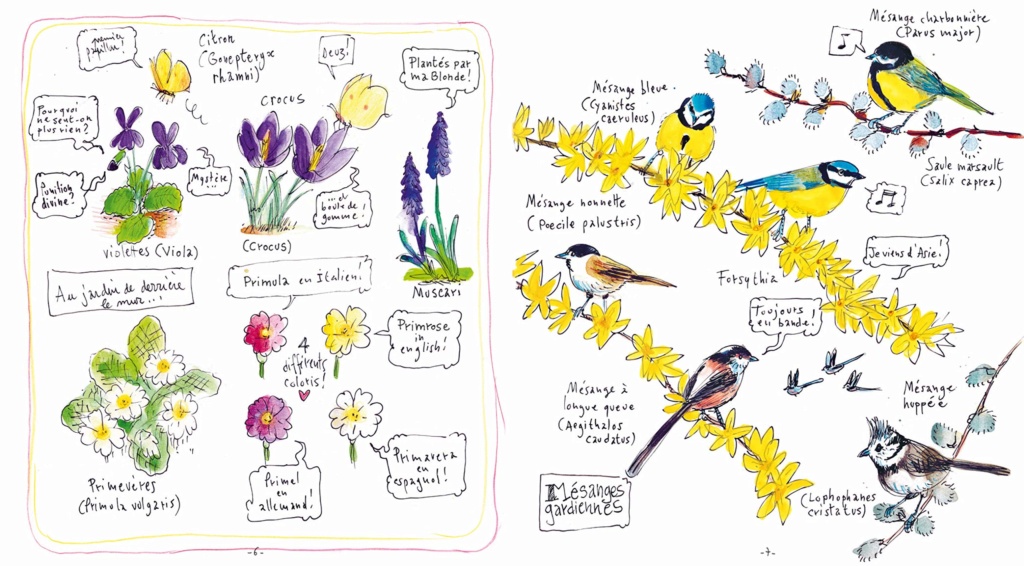 premier
papillon!
Citron
(Gonepteryx
rhamni)
Deuz!
Plantés par
ma Blonde!
Pourquoi
ne sent-on
plus rien?
CROCUS
Punition
divine?
Mystère
...
...et
boule de
gomme!
violettes (Viola)
(Crocus)
Muscari
Au jardin de derrière
le mur...
Primula en Italien!
Primrose
in
english!
4
différents
coloris!
Primevères
(Primula vulgaris)
Primel
en
allemand!
Primavera
en
espagnol!
-6-
Mésange charbonnière
(Parus major)
Mésange bleue.
(Cyanistes
caeruleus)
Saule marsault
(Salix caprea)
Mésange nonnette
(Poecile palustris)
Je viens d'Asie!
Forsythia
Toujours
en bande!
Mésange à
longue queue
(Aegithalos
caudatus)
Mésange
huppée
(Lophophanes
cristatus)
Mésanges
gardiennes
-7-